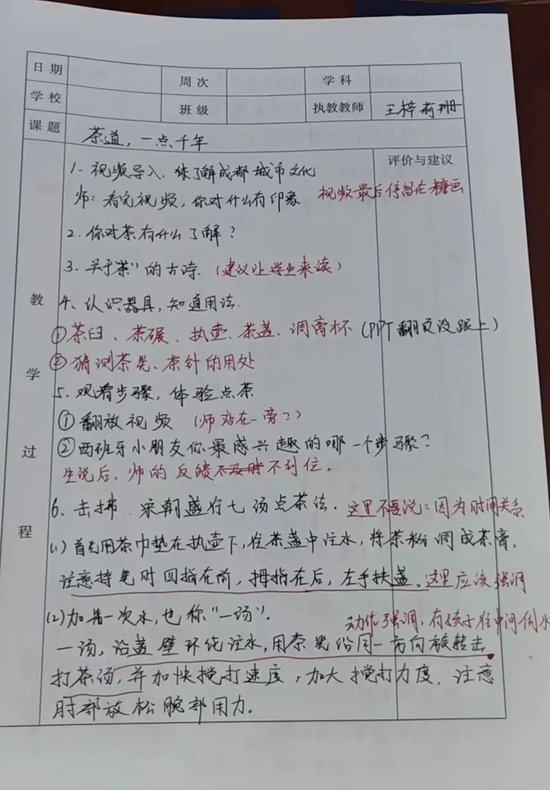 日期
周次
学科
学校
班级
执教教师 王梓 珊
课题 茶道,一点千年
评价与建议
教学过程
1. 视频导入,体了解成都城市文化
师:看完视频,你对什么有印象 视频最后停留在糖画
2. 你对茶有什么了解?
3. 关于“茶”的古诗.(建议让学生来读)
4、认识器具,知道用法.
①茶臼、茶碾、执壶、茶盏、调膏杯(PPT翻页没跟上)
②猜测茶筅、茶针的用处
5、观看步骤,体验点茶
①翻放视频 (师站在一旁?)
②西班牙小朋友你最感兴趣的哪一个步骤?
生说后,师的反馈不到位.
6、击拂 宋朝盛行七汤点茶法. 这里不要说:因为时间关系
(1)首先用茶巾垫在执壶下,往茶盏中注水,将茶粉调成茶膏,
注意持筅时四指在前,拇指在后,左手扶盏.这里应该强调
(2)加第一次水,也称“一汤”. 动作强调,有孩子往中间倒水
一汤,沿盏壁环绕注水,用茶筅沿同一方向旋转击
打茶汤,并加快搅打速度,加大搅打力度,注意
肘部放松腕部用力.